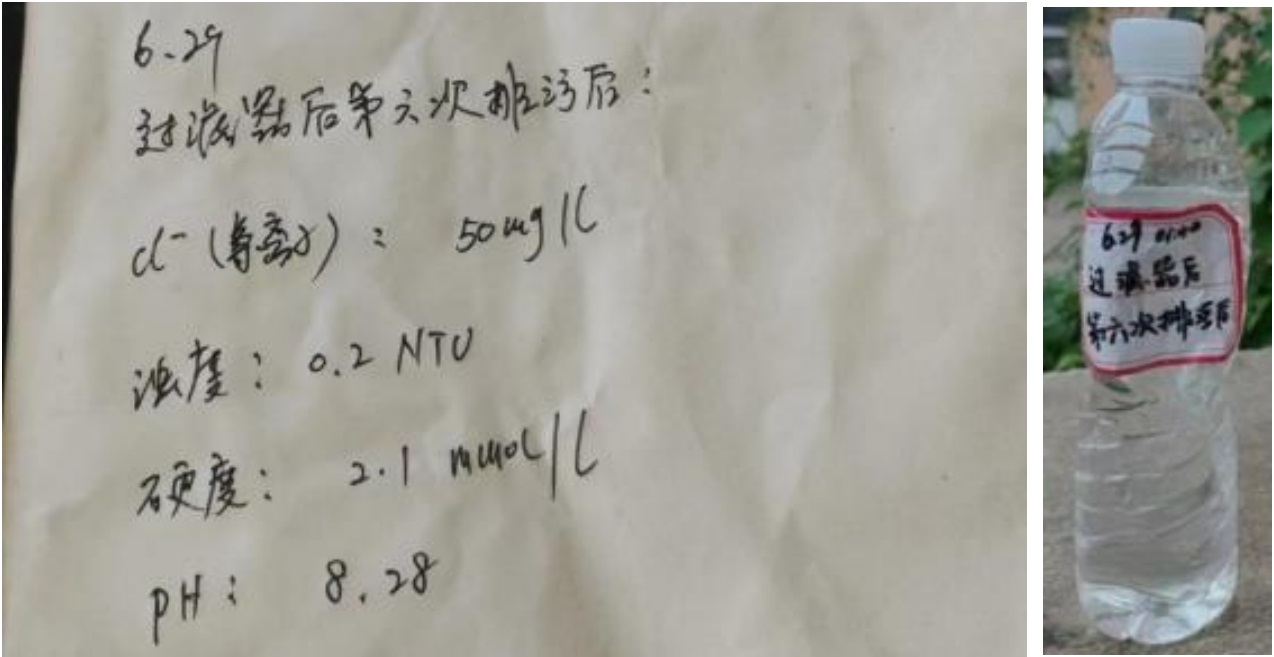 6.29
过滤器后第六次排污后:
cl⁻(氯离子): 50mg/L
浊度: 0.2 NTU
硬度: 2.1 mmol/L
pH: 8.28
6.29
过滤器后
第六次排污后